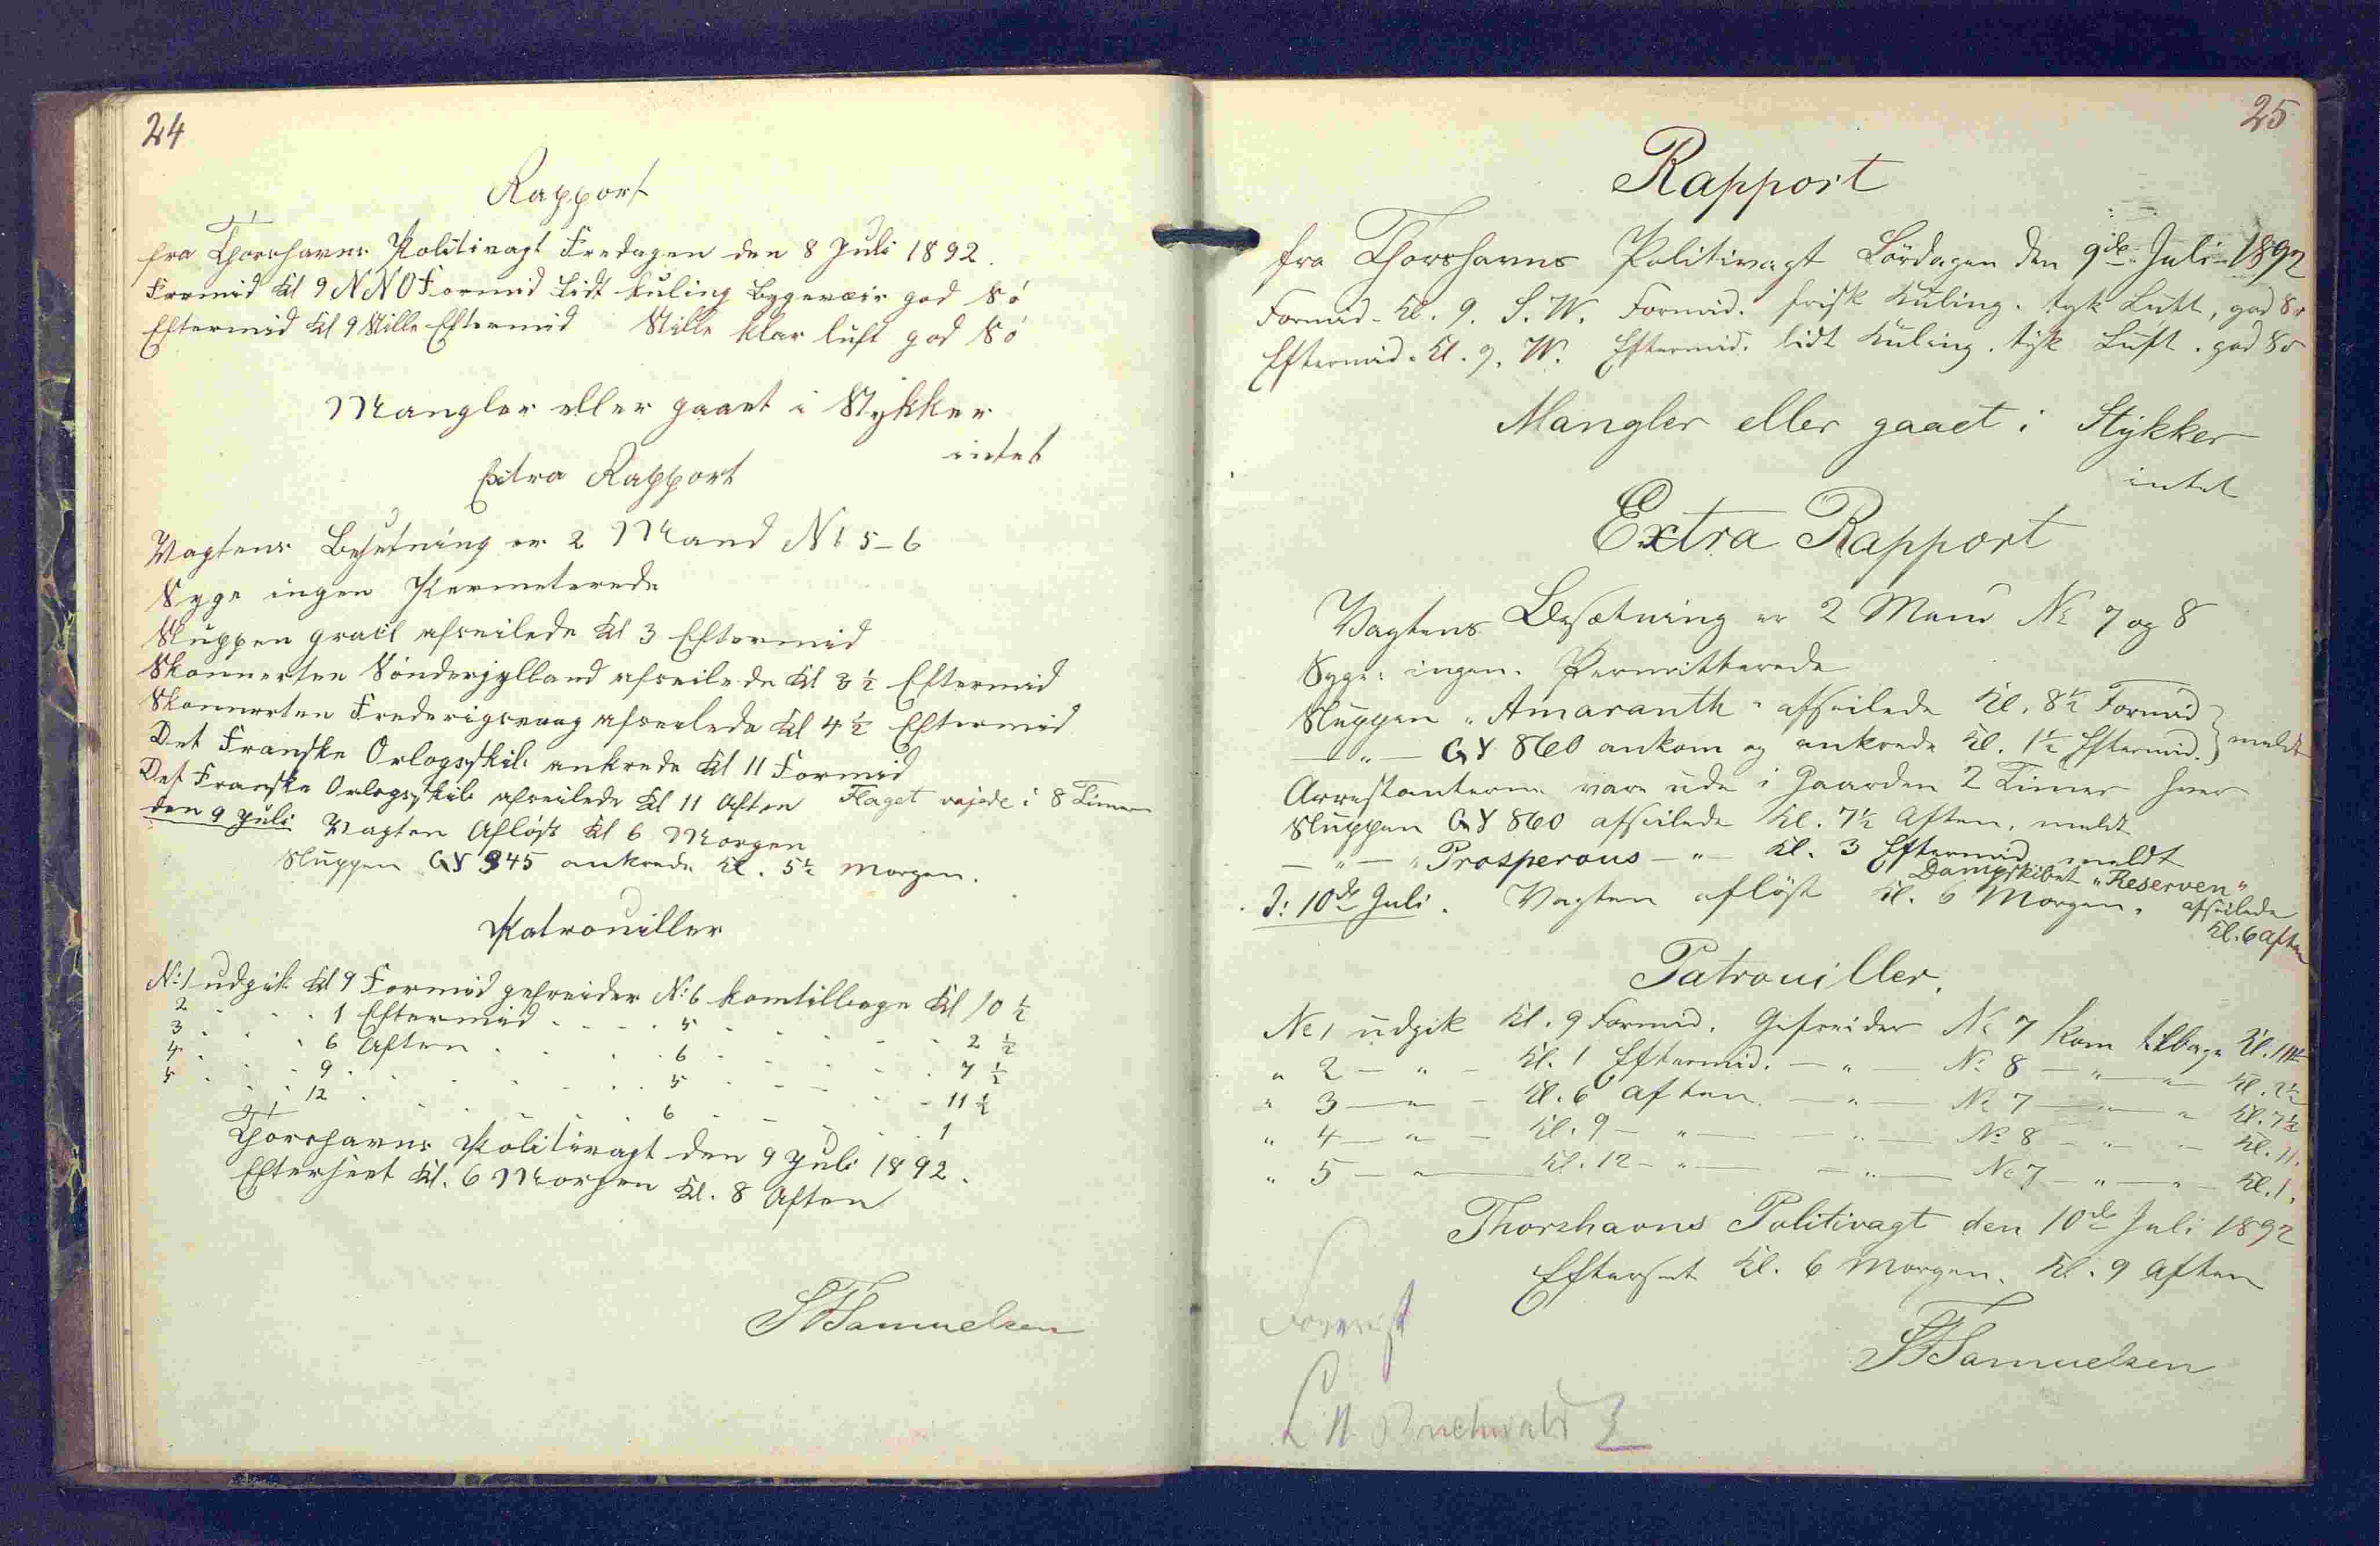 24
Rapport
fra Thorshavns Politivagt Fredagen den 8 Juli 1892.
Formid Kl 9 NNO Formid Lidt Kuling Bygeveir god Sö
Eftermid Kl 9 Stille Eftermid Stille klar luft god Sö
Mangler eller gaaet i Stykker
intet
Extra Rapport
Vagtens Besetning er 2 Mand No 5-6
Syge ingen Permeterede
Sluppen grael afseilede Kl 3 Eftermid
Skonnerten Sönderjylland afseilede Kl 3½ Eftermid
Skonnerten Frederigsvaag afseilede Kl 4½ Eftermid
Det Franske Orlogsskib ankrede Kl 11 Formid
Det Franske Orlogsskib afseilede Kl 11 Aften Flaget vajede i 8 Timer
den 9 Juli Vagten Aflöst Kl 6 Morgen
Sluppen GY 945 ankrede Kl. 5½ Morgen.
Patrouiller
N:1 udgik Kl 9 Formid gefreider N:6 kom tillbage Kl 10½
2 . . . 1 Eftermid . . . . 5 . . . . 2½
3 . . . 6 Aften . . . . 6 . . . . 7½
4 . . . 9 . . . . 5 . . . . 11½
5 . . . 12 . . . . 6 . . . . 1
Thorshavns Politivagt den 9 Juli 1892.
Efterseet Kl. 6 Morgen Kl. 8 Aften
Samuelsen
25
Rapport
fra Thorshavns Politivagt Lördagen den 9de Juli 1892
Formid. Kl. 9. S.W. Formid. frisk Kuling. tyk Luft, god Sö
Eftermid. Kl. 9. W. Eftermid. lidt Kuling. tyk Luft. god Sö
Mangler eller gaaet i Stykker
intet
Extra Rapport
Vagtens Besætning er 2 Mand No 7 og 8
Syge: ingen. Permitterede
Sluppen "Amaranth" afseilede Kl. 8½ Formid
— " — GY 860 ankom og ankrede Kl. 1½ Eftermid. } meldt
Arrestanterne vare ude i Gaarden 2 Timer hver
Sluppen GY 860 afseilede Kl. 7½ Aften. meldt
— " — "Prosperous — " — Kl. 3 Eftermid meldt
Dampskibet "Reserven"
D: 10de Juli. Vagten aflöst Kl. 6 Morgen. afseilede
Kl. 6 Aften
Patrouiller.
No 1 udgik Kl. 9 Formid. Gefreider No 7 kom tilbage Kl.
" 2 — " — Kl. 1 Eftermid. — " — No 8 — " — " — Kl. 2½
" 3 — " — Kl. 6 Aften. — " — No 7 — " — " — Kl. 7½
" 4 — " — Kl. 9 — " — — " — No 8 — " — Kl. 11.
" 5 — " — Kl. 12 — " — — " — No 7 — " — " — Kl. 1.
Thorshavns Politivagt den 10de Juli 1892
Efterseet Kl. 6 Morgen. Kl. 9 Aften
Samuelsen
Forevist
Buchwald